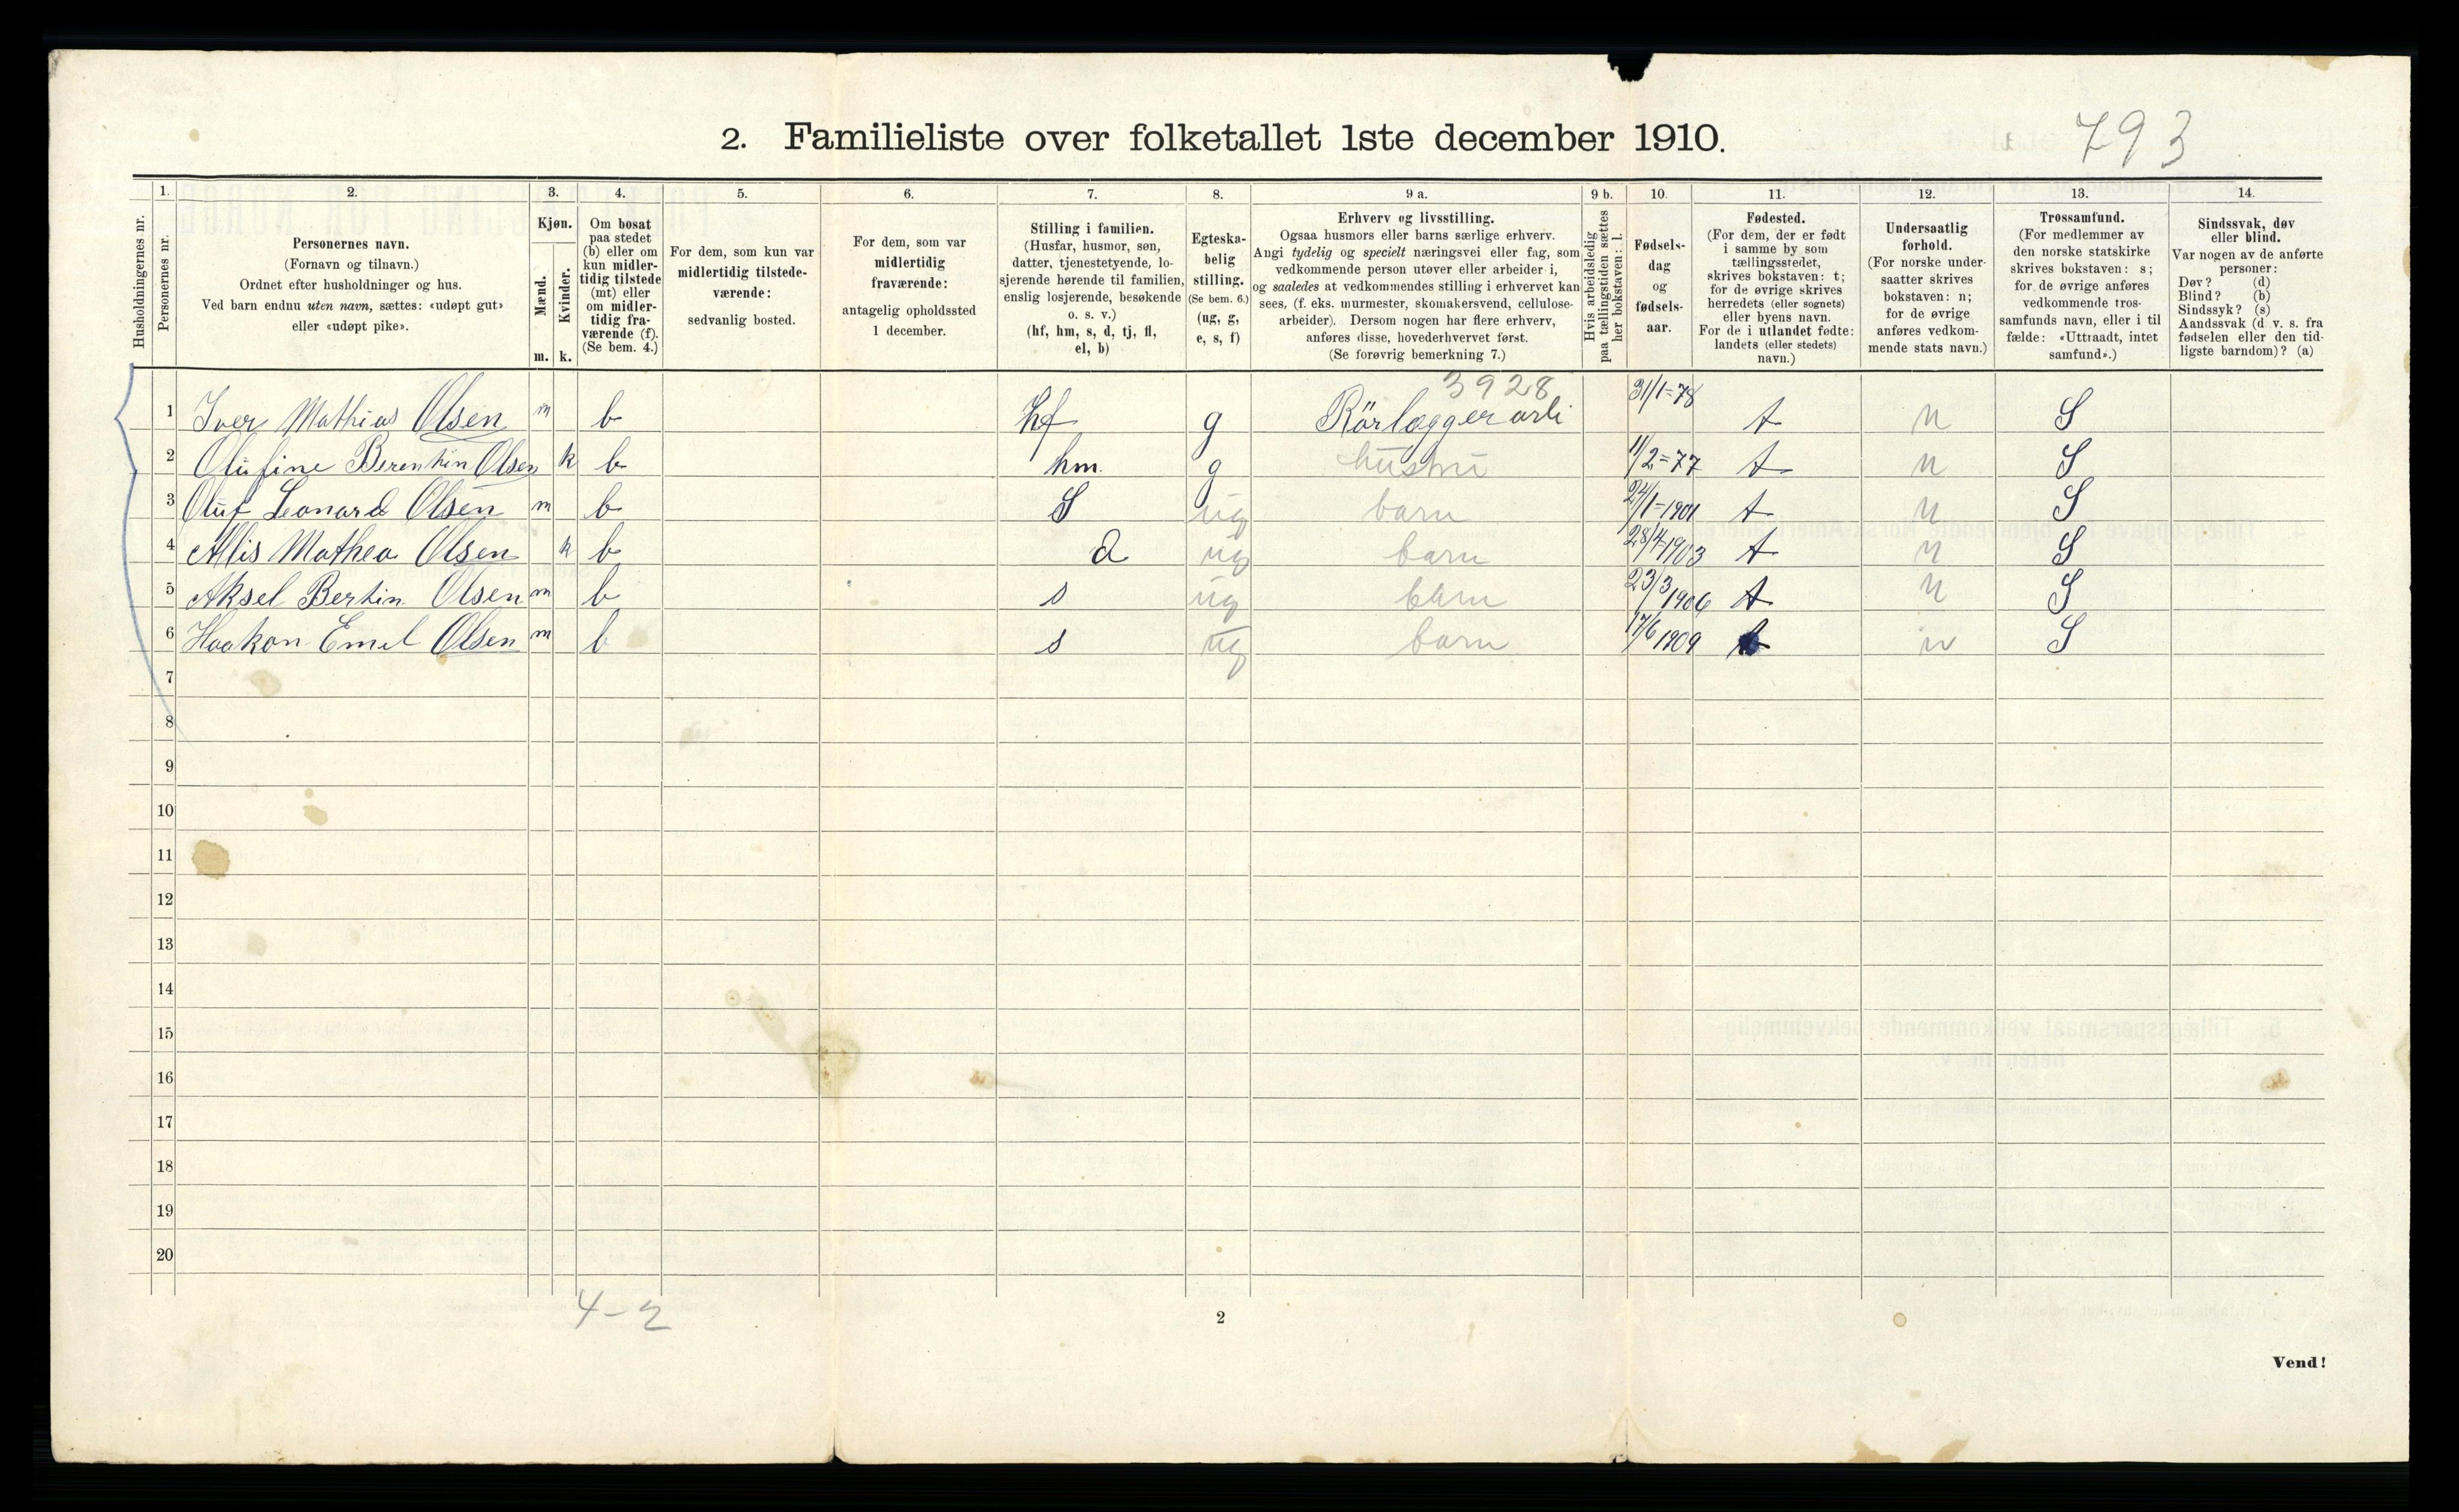 2. Familieliste over folketallet 1ste december 1910.
793
Husholdningernes nr.
1.
Personernes nr.
2.
Personernes navn.
(Fornavn og tilnavn.)
Ordnet efter husholdninger og hus.
Ved barn endnu uten navn, sættes: «udøpt gut»
eller «udøpt pike».
3.
Kjøn.
Mænd.
m.
Kvinder.
k.
4.
Om bosat
paa stedet
(b) eller om
kun midler-
tidig tilstede
(mt) eller
om midler-
tidig fra-
værende (f).
(Se bem. 4.)
5.
For dem, som kun var
midlertidig tilstede-
værende:
sedvanlig bosted.
6.
For dem, som var
midlertidig
fraværende:
antagelig opholdssted
1 december.
7.
Stilling i familien.
(Husfar, husmor, søn,
datter, tjenestetyende, lo-
sjerende hørende til familien,
enslig losjerende, besøkende
o. s. v.)
(hf, hm, s, d, tj, fl,
el, b)
8.
Egteska-
belig
stilling.
(Se bem. 6.)
(ug, g,
e, s, f)
9 a.
Erhverv og livsstilling.
Ogsaa husmors eller barns særlige erhverv.
Angi tydelig og specielt næringsvei eller fag, som
vedkommende person utøver eller arbeider i,
og saaledes at vedkommendes stilling i erhvervet kan
sees, (f. eks. murmester, skomakersvend, cellulose-
arbeider). Dersom nogen har flere erhverv,
anføres disse, hovederhvervet først.
(Se forøvrig bemerkning 7.)
9 b.
Hvis arbeidsledig
paa tællingstiden sættes
her bokstaven: l.
10.
Fødsels-
dag
og
fødsels-
aar.
11.
Fødested.
(For dem, der er født
i samme by som
tællingsstedet,
skrives bokstaven: t;
for de øvrige skrives
herredets (eller sognets)
eller byens navn.
For de i utlandet fødte:
landets (eller stedets)
navn.)
12.
Undersaatlig
forhold.
(For norske under-
saatter skrives
bokstaven: n;
for de øvrige
anføres vedkom-
mende stats navn.)
13.
Trossamfund.
(For medlemmer av
den norske statskirke
skrives bokstaven: s;
for de øvrige anføres
vedkommende tros-
samfunds navn, eller i til
fælde: «Uttraadt, intet
samfund».)
14.
Sindssvak, døv
eller blind.
Var nogen av de anførte
personer:
Døv? (d)
Blind? (b)
Sindssyk? (s)
Aandssvak (d. v. s. fra
fødselen eller den tid-
ligste barndom)? (a)
3928
1 Iver Mathias Olsen m b hf g Rörlægger arb 31/1=78 t n S
2 Olufine Berentin Olsen k b hm. g hustru 11/2=77 t n S
3 Oluf Leonard Olsen m b S ug barn 24/1=1901 t n S
4 Allis Mathea Olsen k b d ug barn 28/4=1903 t n S
5 Aksel Bertin Olsen m b s ug barn 23/3 1906 t n S
6 Haakon Emil Olsen m b s ug barn 17/6 1909 t n S
7
8
9
10
11
12
13
14
15
16
17
18
19
20
4-2
2
Vend!